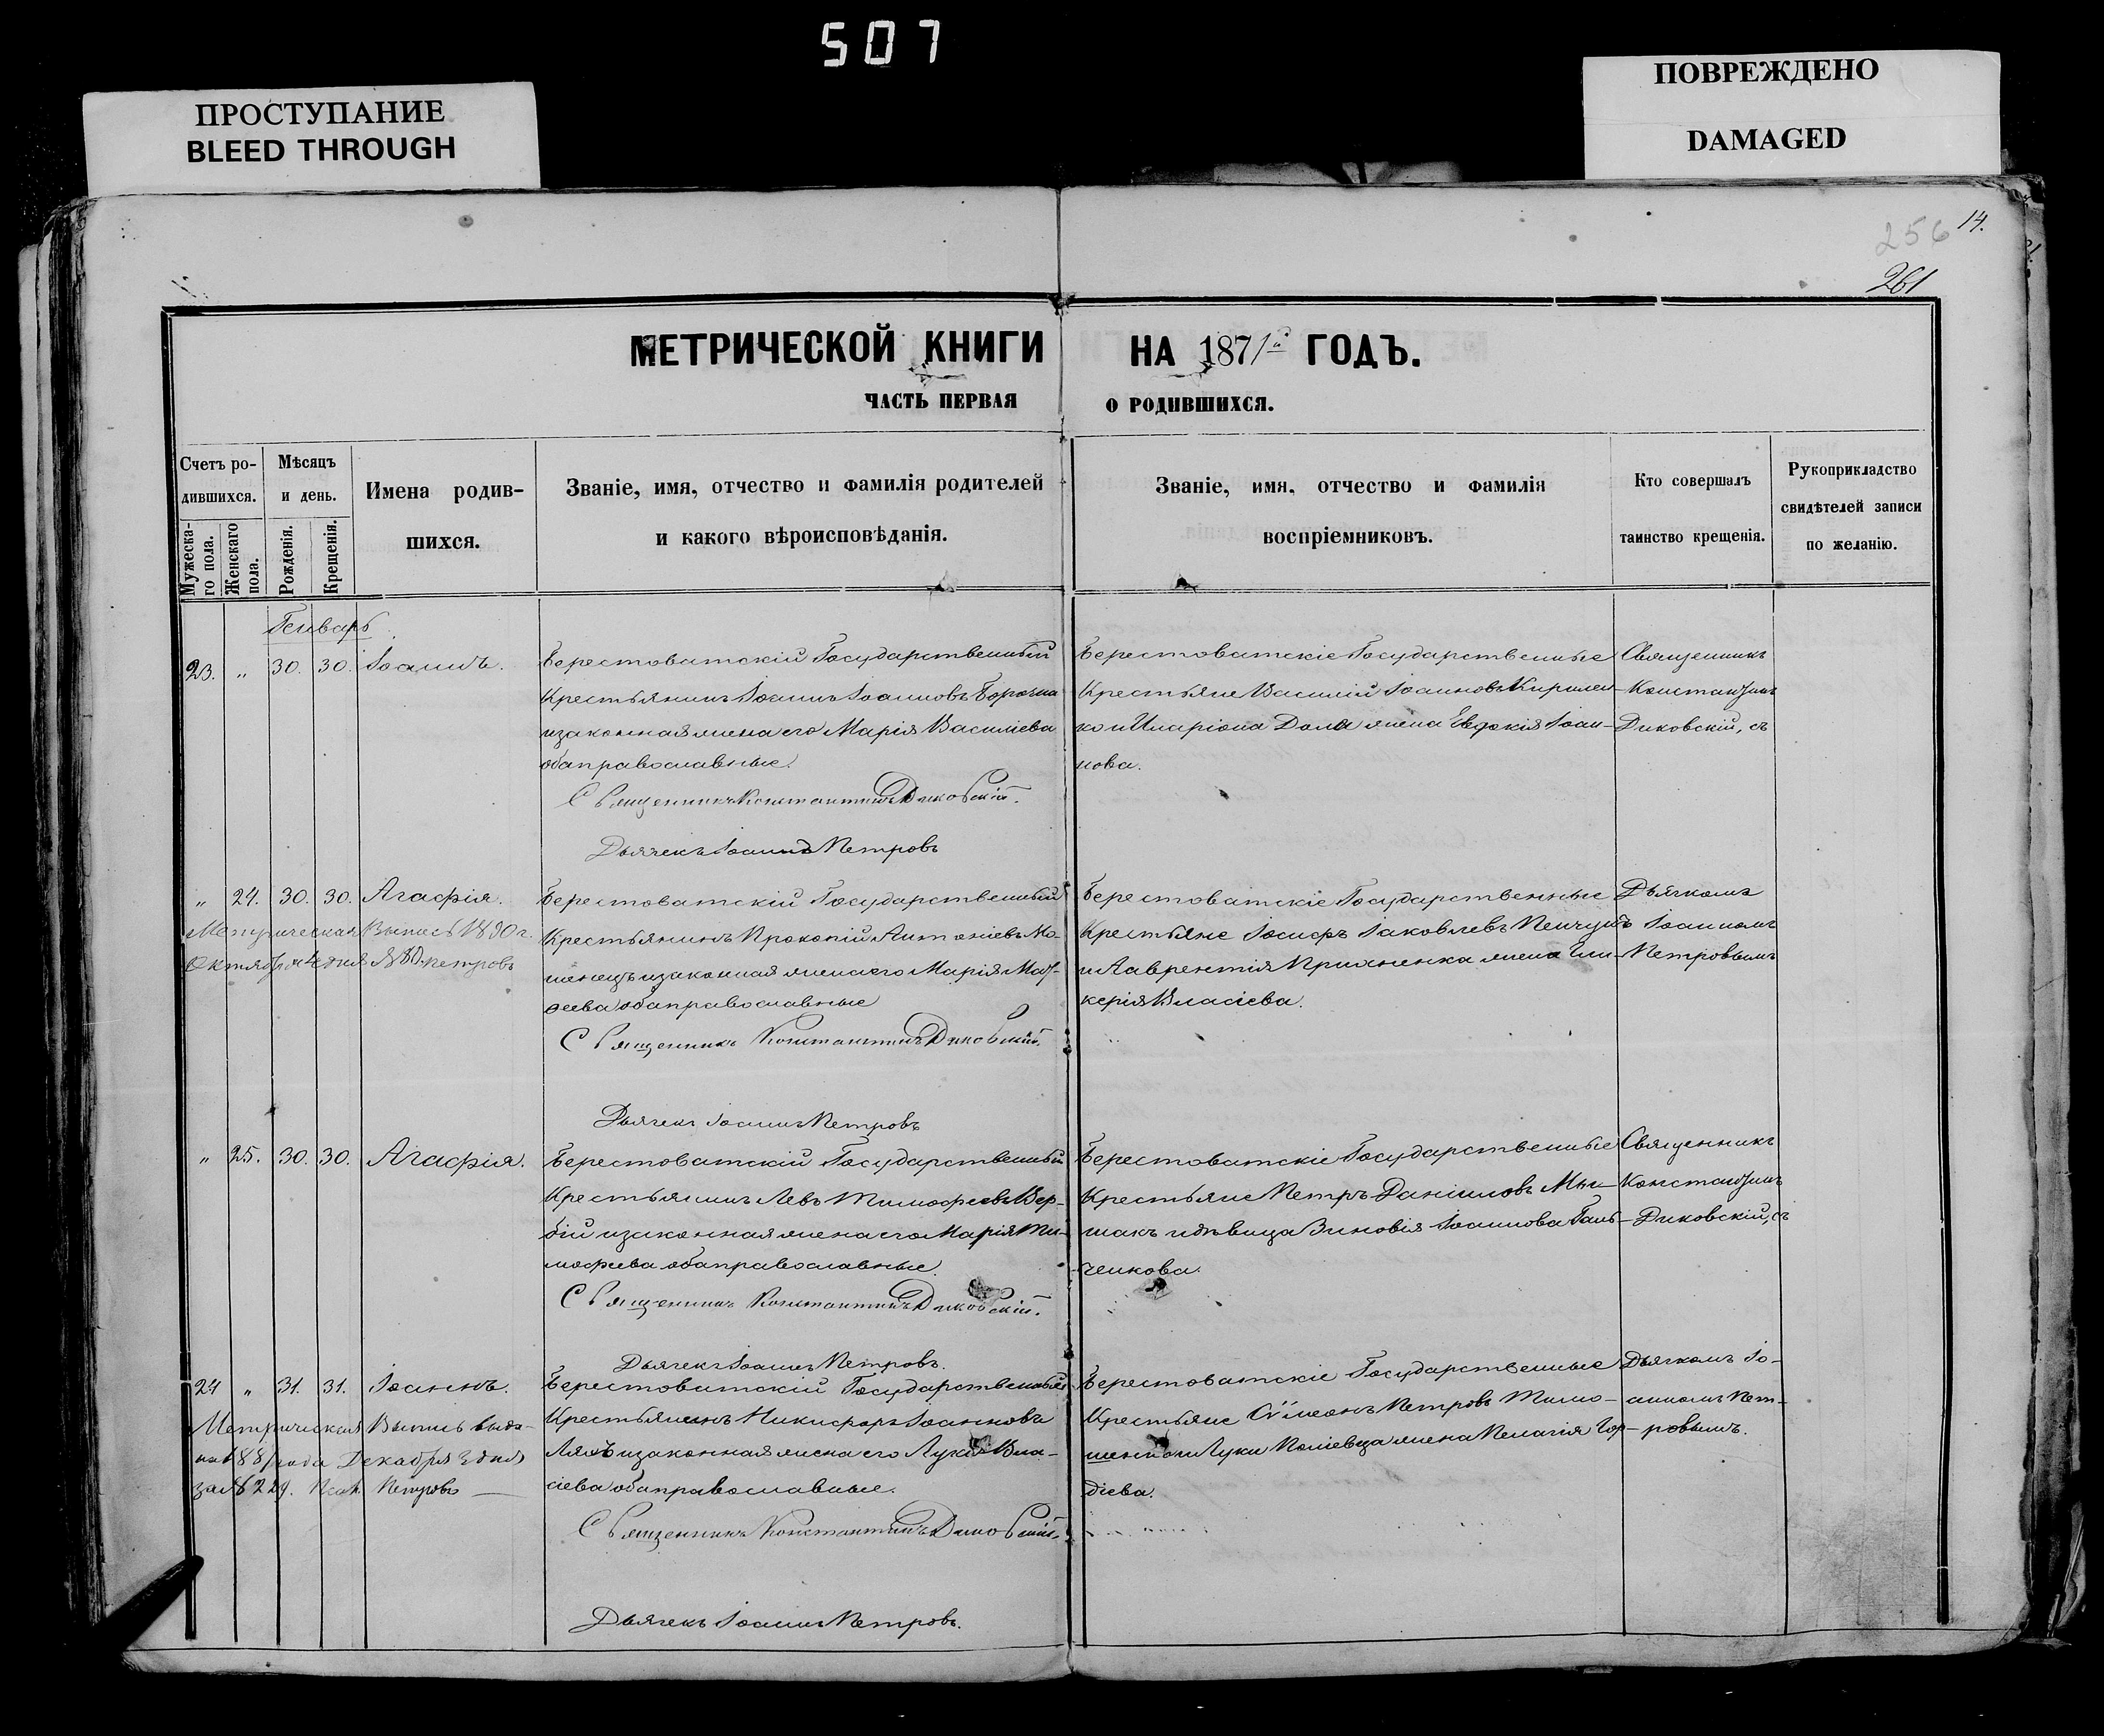 507
ПРОСТУПАНИЕ
BLEED THROUGH
ПОВРЕЖДЕНО
DAMAGED
256 14.
261
МЕТРИЧЕСКОЙ КНИГИ НА 1871й ГОДЪ.
ЧАСТЬ ПЕРВАЯ О РОДИВШИХСЯ.
Счетъ ро-
дившихся.
Мужеска-
го пола.
Женскаго
пола.
Мѣсяцъ
и день.
Рожденія.
Крещенія.
Имена родив-
шихся.
Званіе, имя, отчество и фамилія родителей
и какого вѣроисповѣданія.
Званіе, имя, отчество и фамилія
воспріемниковъ.
Кто совершалъ
таинство крещенія.
Рукоприкладство
свидѣтелей записи
по желанію.
Генварь
23. " 30. 30. Іоаннъ.
Берестоватскій Государственный
Крестьянинъ Іоаннъ Іоанновъ
и законная жена его Марія Василіева
оба православные.
Священникъ Константинъ Диковскій.
Дьячекъ Іоаннъ Петровъ
Берестоватскіе Государственные
Крестьяне Василій Іоанновъ Кирилен-
ко и Иларіона Доля жена Евдокія Іоан-
нова.
Священникъ
Константинъ
Диковскій, съ
" 24. 30. 30. Агафія.
Метрическая Выпись 1890 г.
Октября 4 дня Петровъ
Берестоватскій Государственный
Крестьянинъ Прокопій Антоніевъ Мо-
и законная жена его Марія Мат-
ѳеева оба православные
Священникъ Константинъ Диковскій.
Дьячекъ Іоаннъ Петровъ
Берестоватскіе Государственные
Крестьяне Іосифъ Іаковлевъ
и Лаврентія жена Гли-
керія Власіева.
Дьячкомъ
Іоанномъ
Петровымъ
" 25. 30. 30. Агафія.
Берестоватскій Государственный
Крестьянинъ Левъ Тимофеевъ Вер-
бій и законная жена его Марія Ти-
мофеева оба православные.
Священникъ Константинъ Диковскій.
Дьячекъ Іоаннъ Петровъ.
Берестоватскіе Государственные
Крестьяне Петръ Даніиловъ
и дѣвица Зиновія Іоаннова Ганъ-
ченкова.
Священникъ
Константинъ
Диковскій, съ
24 " 31. 31. Іоаннъ.
Метрическая Выпись выда-
на 188 года Декабря 3 дня
за № 229. Петровъ
Берестоватскій Государственный
Крестьянинъ Никифоръ Іоанновъ
Ляхъ и законная жена его Лукія Вла-
сіева оба православные.
Священникъ Константинъ Диковскій.
Дьячекъ Іоаннъ Петровъ.
Берестоватскіе Государственные
Крестьяне Сѵмеонъ Петровъ Тимо-
шенко и Луки жена Пелагія Гор-
діева.
Дьячкомъ Іо-
анномъ Пет-
ровымъ.